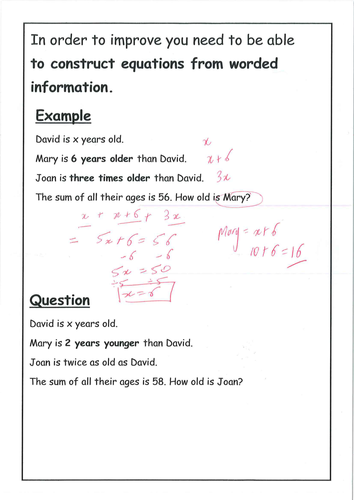 In order to improve you need to be able
to construct equations from worded
information.
Example
David is x years old. x
Mary is 6 years older than David. x+6
Joan is three times older than David. 3x
The sum of all their ages is 56. How old is Mary?
x + x+6 + 3x
= 5x+6 = 56
-6 -6
5x = 50
÷5 ÷5
x = 6
Mary = x+6
10+6 = 16
Question
David is x years old.
Mary is 2 years younger than David.
Joan is twice as old as David.
The sum of all their ages is 58. How old is Joan?